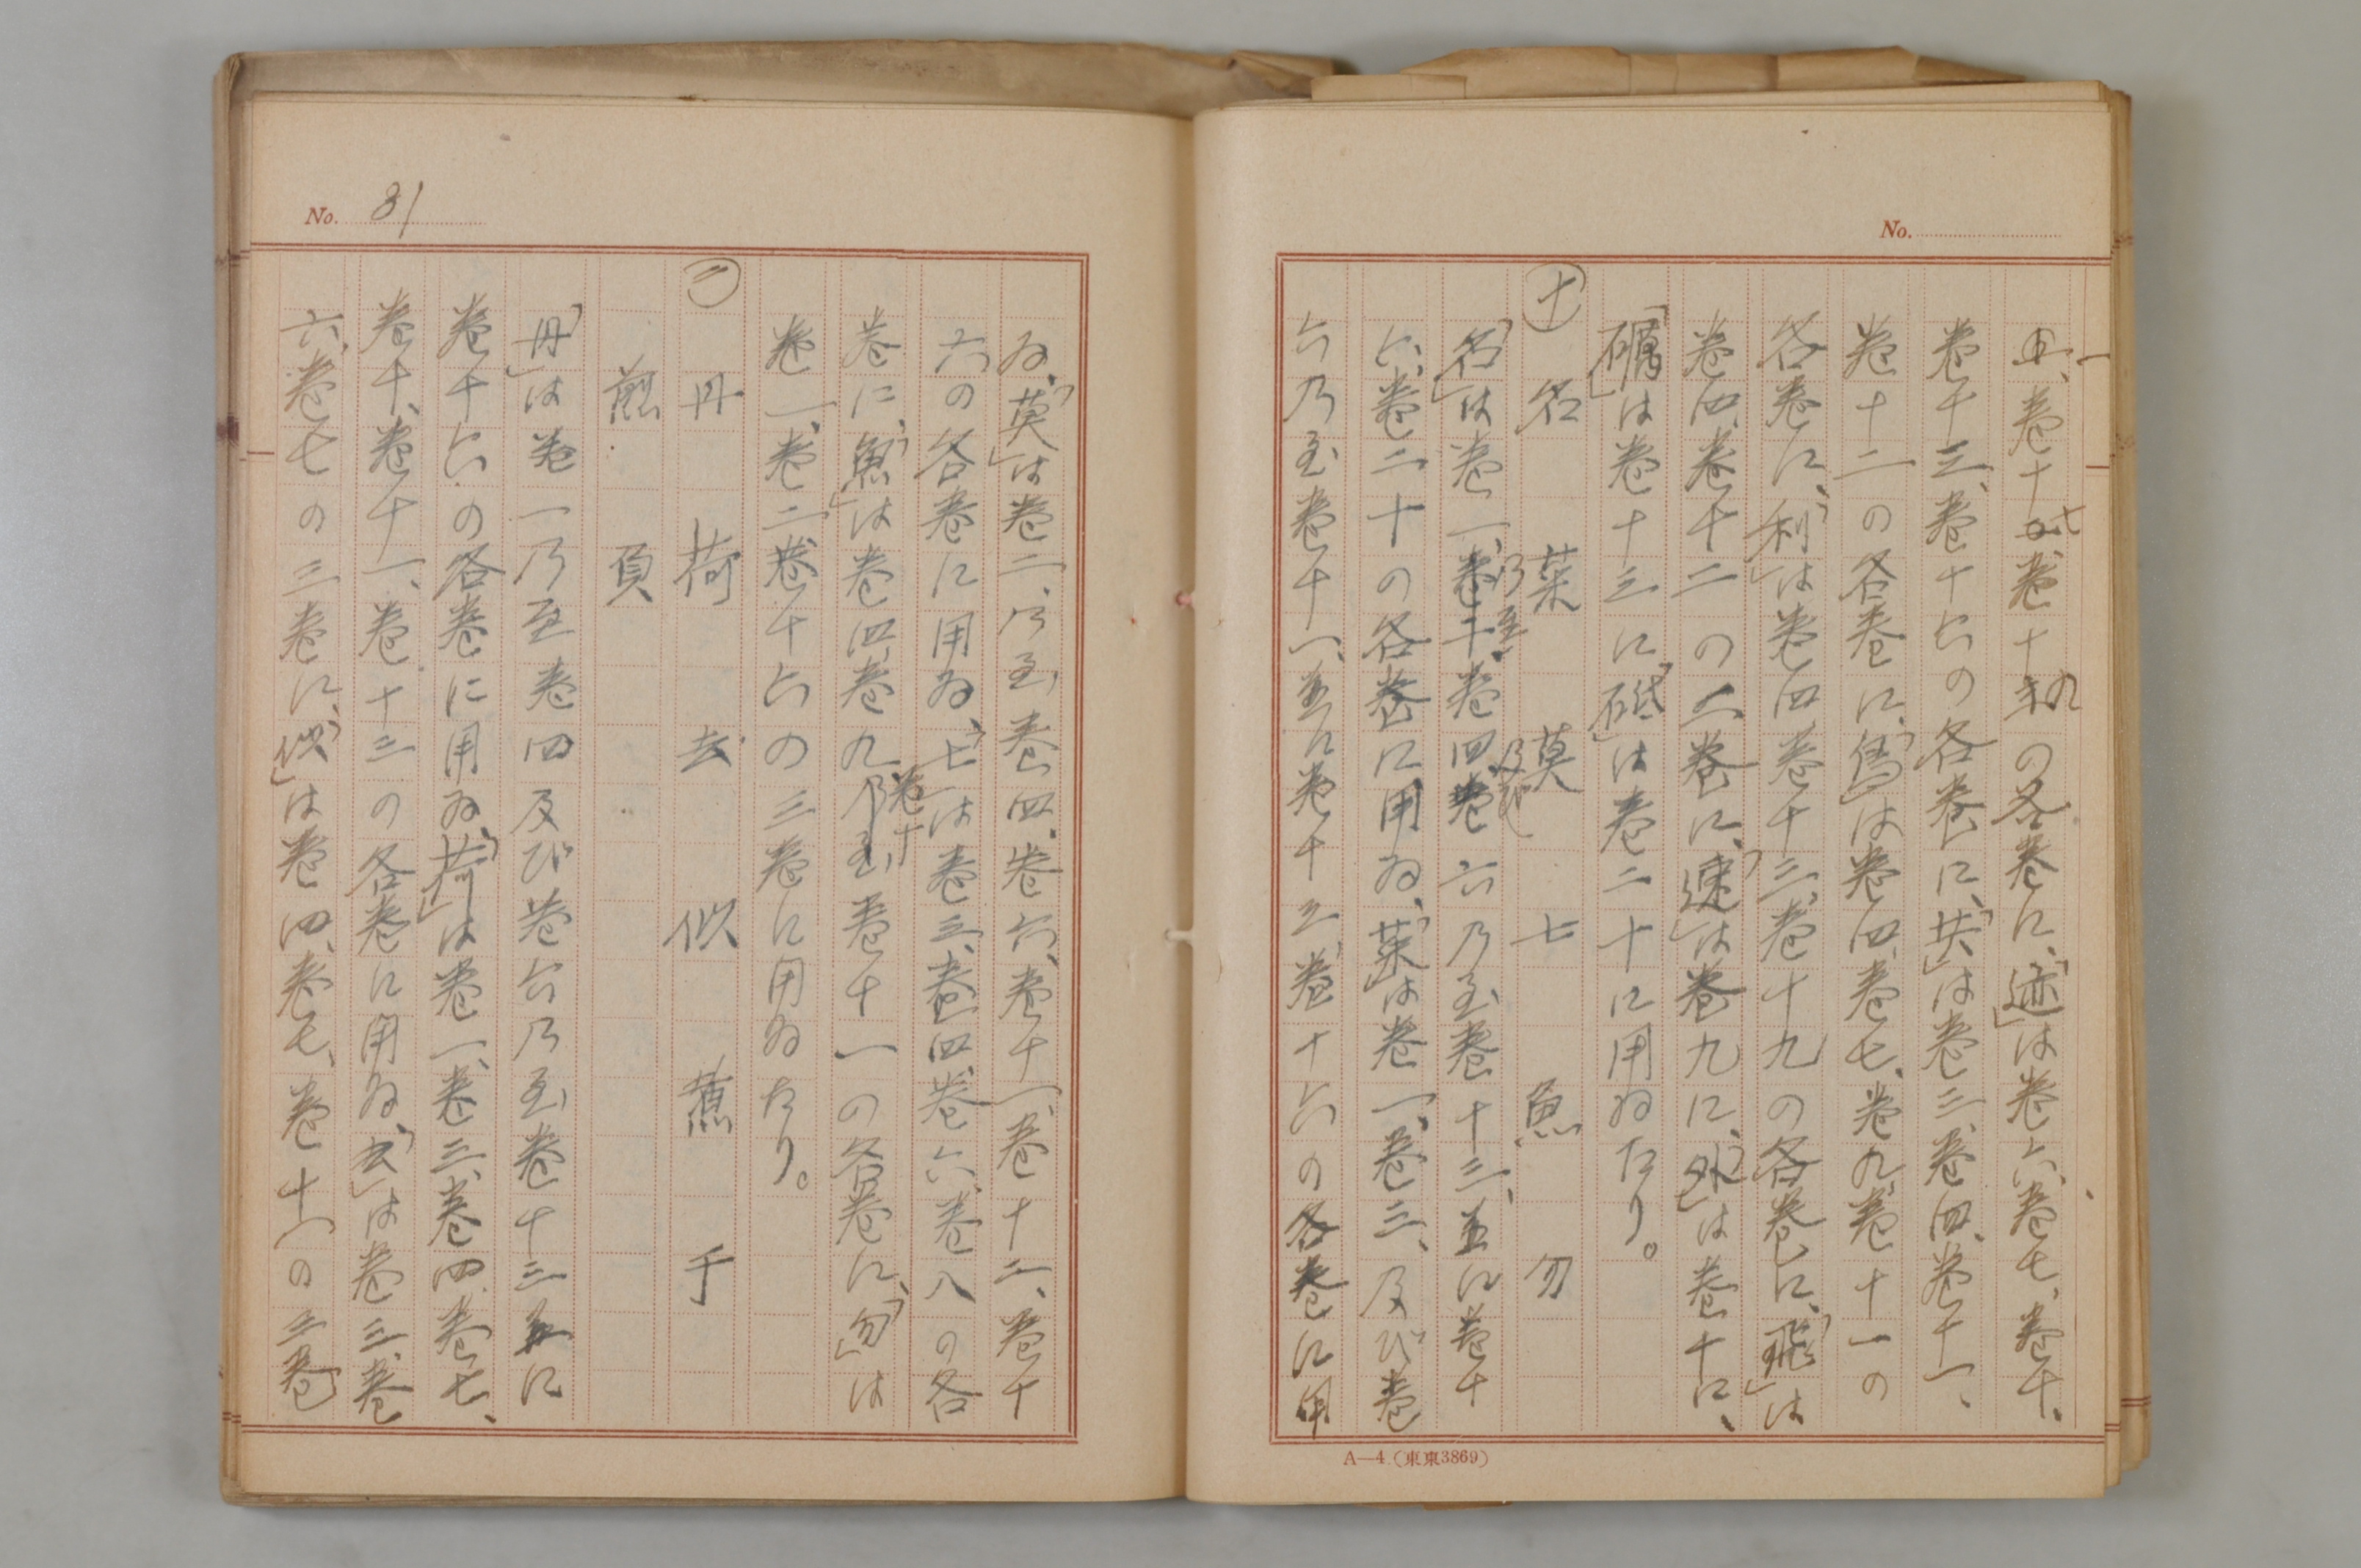 No.
四、巻十七巻十九の各巻に、「迹」は巻六、巻七、巻十、
巻十三、巻十六の各巻に、「共」は巻三、巻四、巻十一、
巻十二の各巻に、「僞」は巻四、巻七、巻九、巻十一の
各巻に、「利」は巻四、巻十三、巻十九の各巻に、「飛」は
巻四、巻十二の二巻に、「速」は巻九に、「外」は巻十に、
「礪」は巻十三に「砥」は巻二十に用ゐたり。
㊉ 名 菜 莫 七 魚 勿
「名」は巻一、乃至、巻四及び巻六乃至巻十三、並に巻十
六、巻二十の各巻に用ゐ、「菜」は巻一、巻三、及び巻
六乃至巻十一、並に巻十三、巻十六の各巻に用
A—4.(東東3869)
No. 81
ゐ、「莫」は巻二、乃至巻四、巻六、巻十一、巻十二、巻十
六の各巻に用ゐ、「七」は巻三、巻四、巻六、巻八の各
巻に、「魚」は巻四、巻九、巻十乃至巻十一の各巻に、「勿」は
巻一、巻二、巻十六の三巻に用ゐたり。
㊁ 丹 荷 去 似 䔰 手
煎 負
「丹」は巻一乃至巻四及び巻六乃至巻十三並に
巻十六の各巻に用ゐ、「荷」は巻一、巻三、巻四、巻七、
巻十、巻十一、巻十三の各巻に用ゐ、「去」は巻三、巻
六、巻七の三巻に、「似」は巻四、巻七、巻十一の三巻